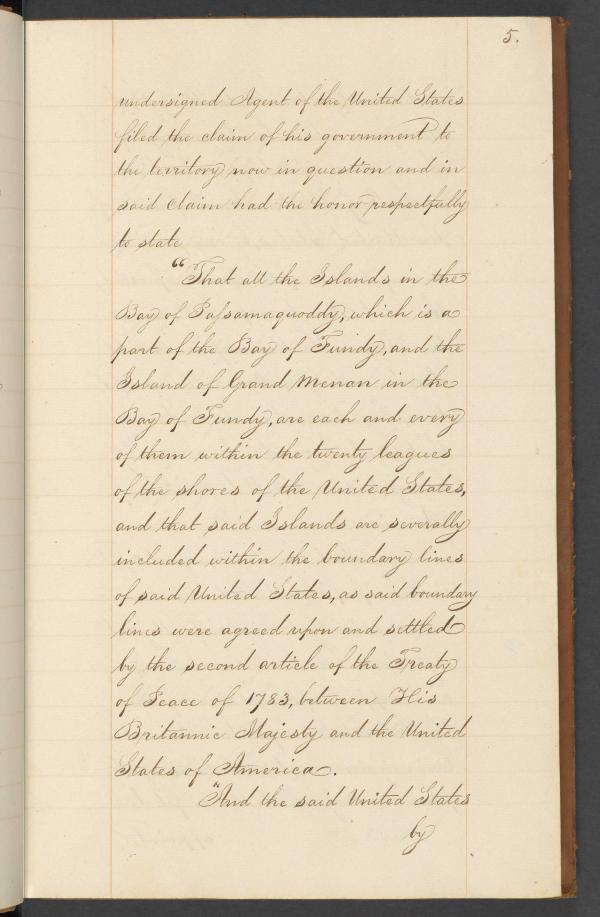 5.
undersigned Agent of the United States
filed the claim of his government to
the territory now in question and in
said claim had the honor respectfully
to state
"That all the Islands in the
Bay of Paſsamaquoddy, which is a
part of the Bay of Fundy, and the
Island of Grand Menan in the
Bay of Fundy, are each and every
of them within the twenty leagues
of the shores of the United States,
and that said Islands are severally
included within the boundary lines
of said United States, as said boundary
lines were agreed upon and settled
by the second article of the Treaty
of Peace of 1783, between His
Britannic Majesty and the United
States of America.
"And the said United States
by